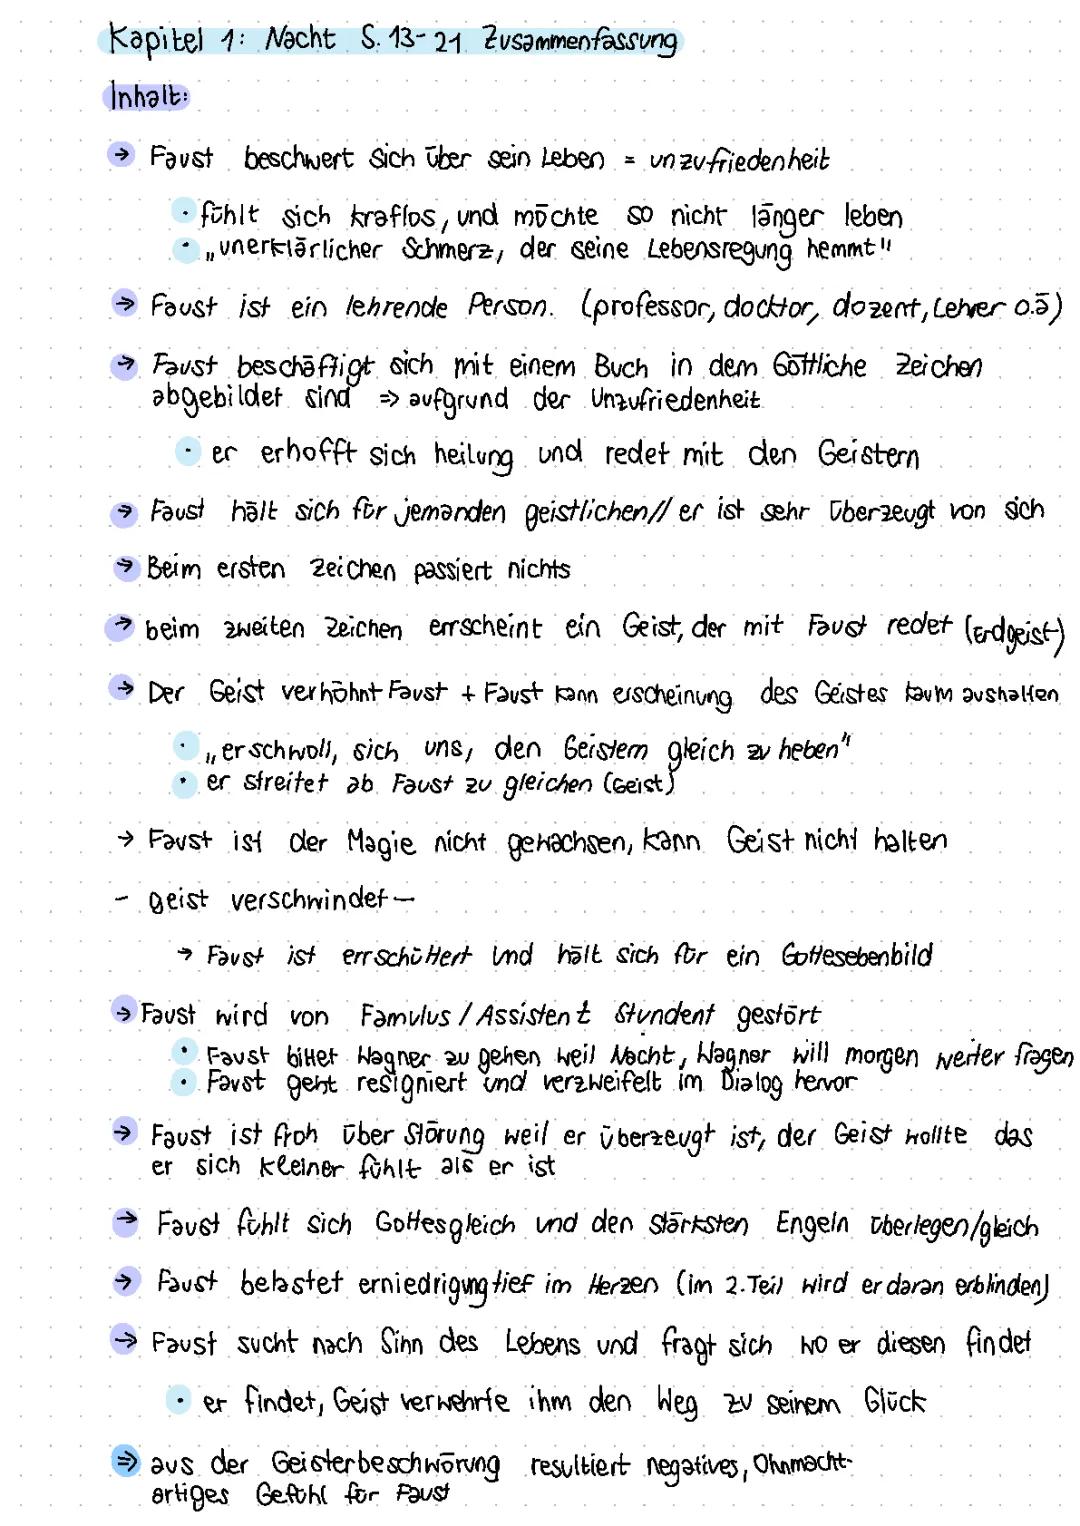 Kapitel 1: Nacht S. 13-21 Zusammenfassung
Inhalt:
→ Faust beschwert sich über sein Leben = unzufriedenheit
· fühlt sich kraflos, und möchte so nicht länger leben
· „unerklärlicher Schmerz, der seine Lebensregung hemmt"
→ Faust ist ein lehrende Person. (professor, docktor, dozent, Lehrer o.ä)
→ Faust beschäftigt sich mit einem Buch in dem Göttliche Zeichen
abgebildet sind => aufgrund der Unzufriedenheit
· er erhofft sich heilung und redet mit den Geistern
→ Faust hält sich für jemanden geistlichen// er ist sehr überzeugt von sich
→ Beim ersten Zeichen passiert nichts
→ beim zweiten Zeichen errscheint ein Geist, der mit Faust redet (Erdgeist)
→ Der Geist verhöhnt Faust + Faust kann erscheinung des Geistes kaum aushalten
· „er schwoll, sich uns, den Geistern gleich zu heben"
· er streitet ab Faust zu gleichen (Geist)
→ Faust ist der Magie nicht gewachsen, kann Geist nicht halten
- geist verschwindet -
→ Faust ist errschüttert und hält sich für ein Gottesebenbild
→ Faust wird von Famulus / Assistent Stundent gestört
· Faust bittet Wagner zu gehen weil Nacht, Wagner will morgen weiter fragen
· Faust geht resigniert und verzweifelt im Dialog hervor
→ Faust ist froh über Störung weil er überzeugt ist, der Geist wollte das
er sich kleiner fühlt als er ist
→ Faust fühlt sich Gottesgleich und den Stärksten Engeln überlegen/gleich
→ Faust belastet erniedrigung tief im Herzen (im 2. Teil wird er daran erblinden)
→ Faust sucht nach Sinn des Lebens und fragt sich wo er diesen findet
· er findet, Geist verwehrte ihm den Weg zu seinem Glück
=> aus der Geisterbeschwörung resultiert negatives, Ohnmacht-
artiges Gefühl für Faust